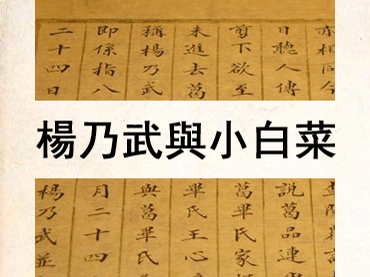 亦相同今
日聽人傳
剪下欲至
未進去葛
稱楊乃武
即係指八
二十四日
楊乃武與小白菜
說葛品連
葛畢氏家
畢氏王心
與葛畢氏
月二十四
楊乃武並